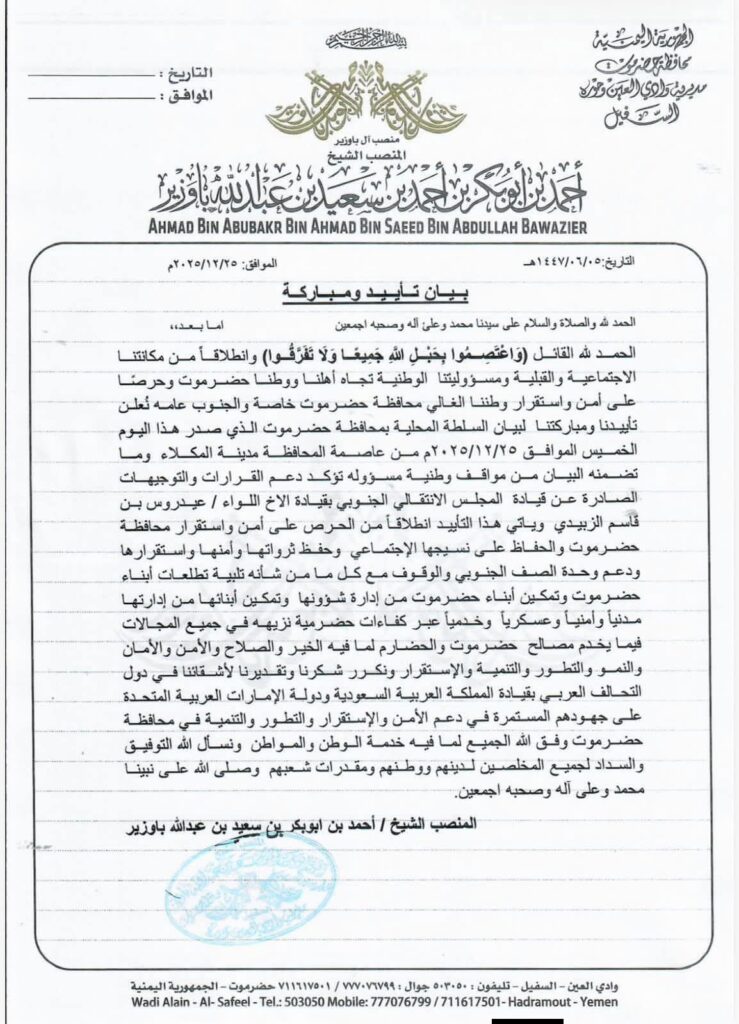 بسم الله الرحمن الرحيم
الجمهورية اليمنية
محافظة حضرموت
مديرية وادي العين وحوره
السفيل
التاريخ :
الموافق :
منصب آل باوزير
المنصب الشيخ
أحمد بن أبوبكر بن أحمد بن سعيد بن عبدالله باوزير
AHMAD BIN ABUBAKR BIN AHMAD BIN SAEED BIN ABDULLAH BAWAZIER
التاريخ: ١٤٤٧/٠٦/٠٥هـ الموافق: ٢٠٢٥/١٢/٢٥م
بيان تأييد ومباركة
الحمد لله والصلاة والسلام على سيدنا محمد وعلئ آله وصحبه اجمعين اما بعد،،
الحمد لله القائل (وَاعْتَصِمُوا بِحَبْلِ اللَّهِ جَمِيعًا وَلَا تَفَرَّقُوا) وانطلاقاً من مكانتنا
الاجتماعية والقبلية ومسؤوليتنا الوطنية تجاه أهلنا ووطنا حضرموت وحرصًا
على أمن واستقرار وطننا الغالي محافظة حضرموت خاصة والجنوب عامه نُعلن
تأييدنا ومباركتنا لبيان السلطة المحلية بمحافظة حضرموت الذي صدر هذا اليوم
الخميس الموافق ٢٠٢٥/١٢/٢٥م من عاصمة المحافظة مدينة المكلاء وما
تضمنه البيان من مواقف وطنية مسؤوله تؤكد دعم القرارات والتوجيهات
الصادرة عن قيادة المجلس الانتقالي الجنوبي بقيادة الاخ اللواء / عيدروس بن
قاسم الزبيدي وياتي هذا التأييد انطلاقاً من الحرص على أمن واستقرار محافظة
حضرموت والحفاظ على نسيجها الإجتماعي وحفظ ثرواتها وأمنها واستقرارها
ودعم وحدة الصف الجنوبي والوقوف مع كل ما من شأنه تلبية تطلعات أبناء
حضرموت وتمكين أبناء حضرموت من إدارة شؤونها وتمكين أبنائها من إدارتها
مدنياً وأمنياً وعسكرياً وخدمياً عبر كفاءات حضرمية نزيهه في جميع المجالات
فيما يخدم مصالح حضرموت والحضارم لما فيه الخير والصلاح والأمن والأمان
والنمو والتطور والتنمية والإستقرار ونكرر شكرنا وتقديرنا لأشقائنا في دول
التحالف العربي بقيادة المملكة العربية السعودية ودولة الإمارات العربية المتحدة
على جهودهم المستمرة في دعم الأمن والإستقرار والتطور والتنمية في محافظة
حضرموت وفق الله الجميع لما فيه خدمة الوطن والمواطن ونسأل الله التوفيق
والسداد لجميع المخلصين لدينهم ووطنهم ومقدرات شعبهم وصلى الله على نبينا
محمد وعلى آله وصحبه اجمعين.
المنصب الشيخ / أحمد بن ابوبكر بن سعيد بن عبدالله باوزير
وادي العين - السفيل - تليفون : ٥٠٣٠٥٠ جوال : ٧٧٧٠٧٦٧٩٩ / ٧١١٦١٧٥٠١ حضرموت - الجمهورية اليمنية
Wadi Alain - Al- Safeel - Tel.: 503050 Mobile: 777076799 / 711617501- Hadramout - Yemen